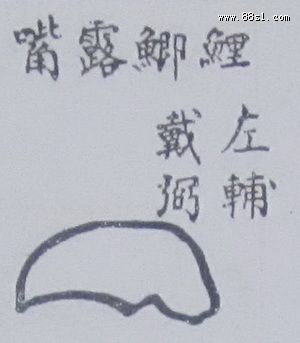 www.88s1.com
鯉鯽露嘴
左輔
戴弼